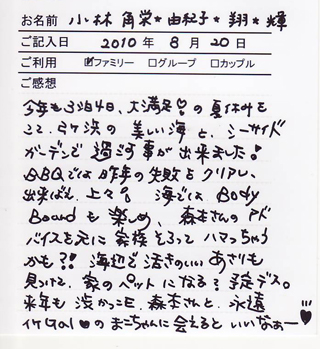 お名前 小林 角栄★由紀子★翔★輝
ご記入日 2010年 8月 20日
ご利用 ☑ファミリー □グループ □カップル
ご感想
今年も3泊4日、大満足♡の夏休みを
ここ、弓ヶ浜の美しい海と、シーサイド
ガーデンで過ごす事が出来ました!
BBQでは昨年の失敗をクリアし、
出来ばえ上々! 海ではBody
Boardも楽しめ、森本さんのアド
バイスを元に家族そろってハマっちゃう
かも?! 海辺で活きのいいあさりも
見つけて、家のペットになる?予定デス。
来年も渋かっこE、森本さんと、永遠
イケGal♥のまこちゃんに会えるといいなぁー♥